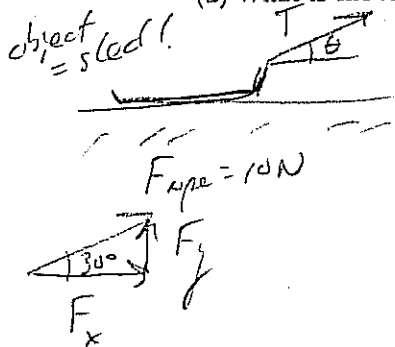 T
object
= sled!
θ
F rope = 10N
30°
F y
F x